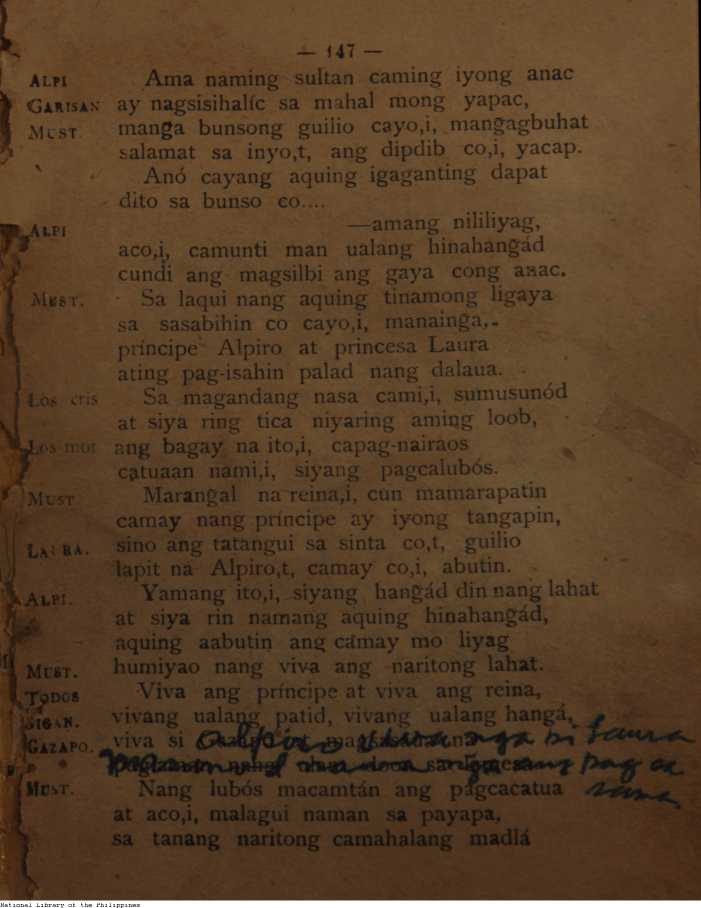 — 147 —
ALPI Ama naming sultan caming iyong anac
GARISAN ay nagsisihalíc sa mahal mong yapac,
MUST. mang̃a bunsong guilio cayo,i, mang̃agbuhat
salamat sa inyo,t, ang dipdib co,i, yacap.
Anó cayang aquing igaganting dapat
dito sa bunso co....
ALPI —amang nililiyag,
aco,i, camunti man ualang hinahang̃ád
cundi ang magsilbi ang gaya cong anac.
MUST. Sa laqui nang aquing tinamong ligaya
sa sasabihin co cayo,i, manaing̃a,
príncipe Alpiro at princesa Laura
ating pag-isahin palad nang dalaua.
LOS CRIS Sa magandang nasa cami,i, sumusunód
at siya ring tica niyaring aming loob,
LOS MOR ang bagay na ito,i, capag-nairaos
catuaan nami,i, siyang pagcalubós.
MUST Marang̃al na reina,i, cun mamarapatin
camay nang príncipe ay iyong tangapin,
LAURA. sino ang tatangui sa sinta co,t, guilio
lapit na Alpiro,t, camay co,i, abutin.
ALPI. Yamang ito,i, siyang hang̃ád din nang lahat
at siya rin namang aquing hinahang̃ád,
aquing aabutin ang camay mo liyag
MUST. humiyao nang viva ang naritong lahat.
TODOS Viva ang príncipe at viva ang reina,
SIGAN. vivang ualang patid, vivang ualang hangá,
GAZAPO. viva si Alpiro viva nga si Laura
ang pag sa
MUST. Nang lubós macamtán ang pagcacatua
at aco,i, malagui naman sa payapa,
sa tanang naritong camahalang madlá
National Library of the Philippines